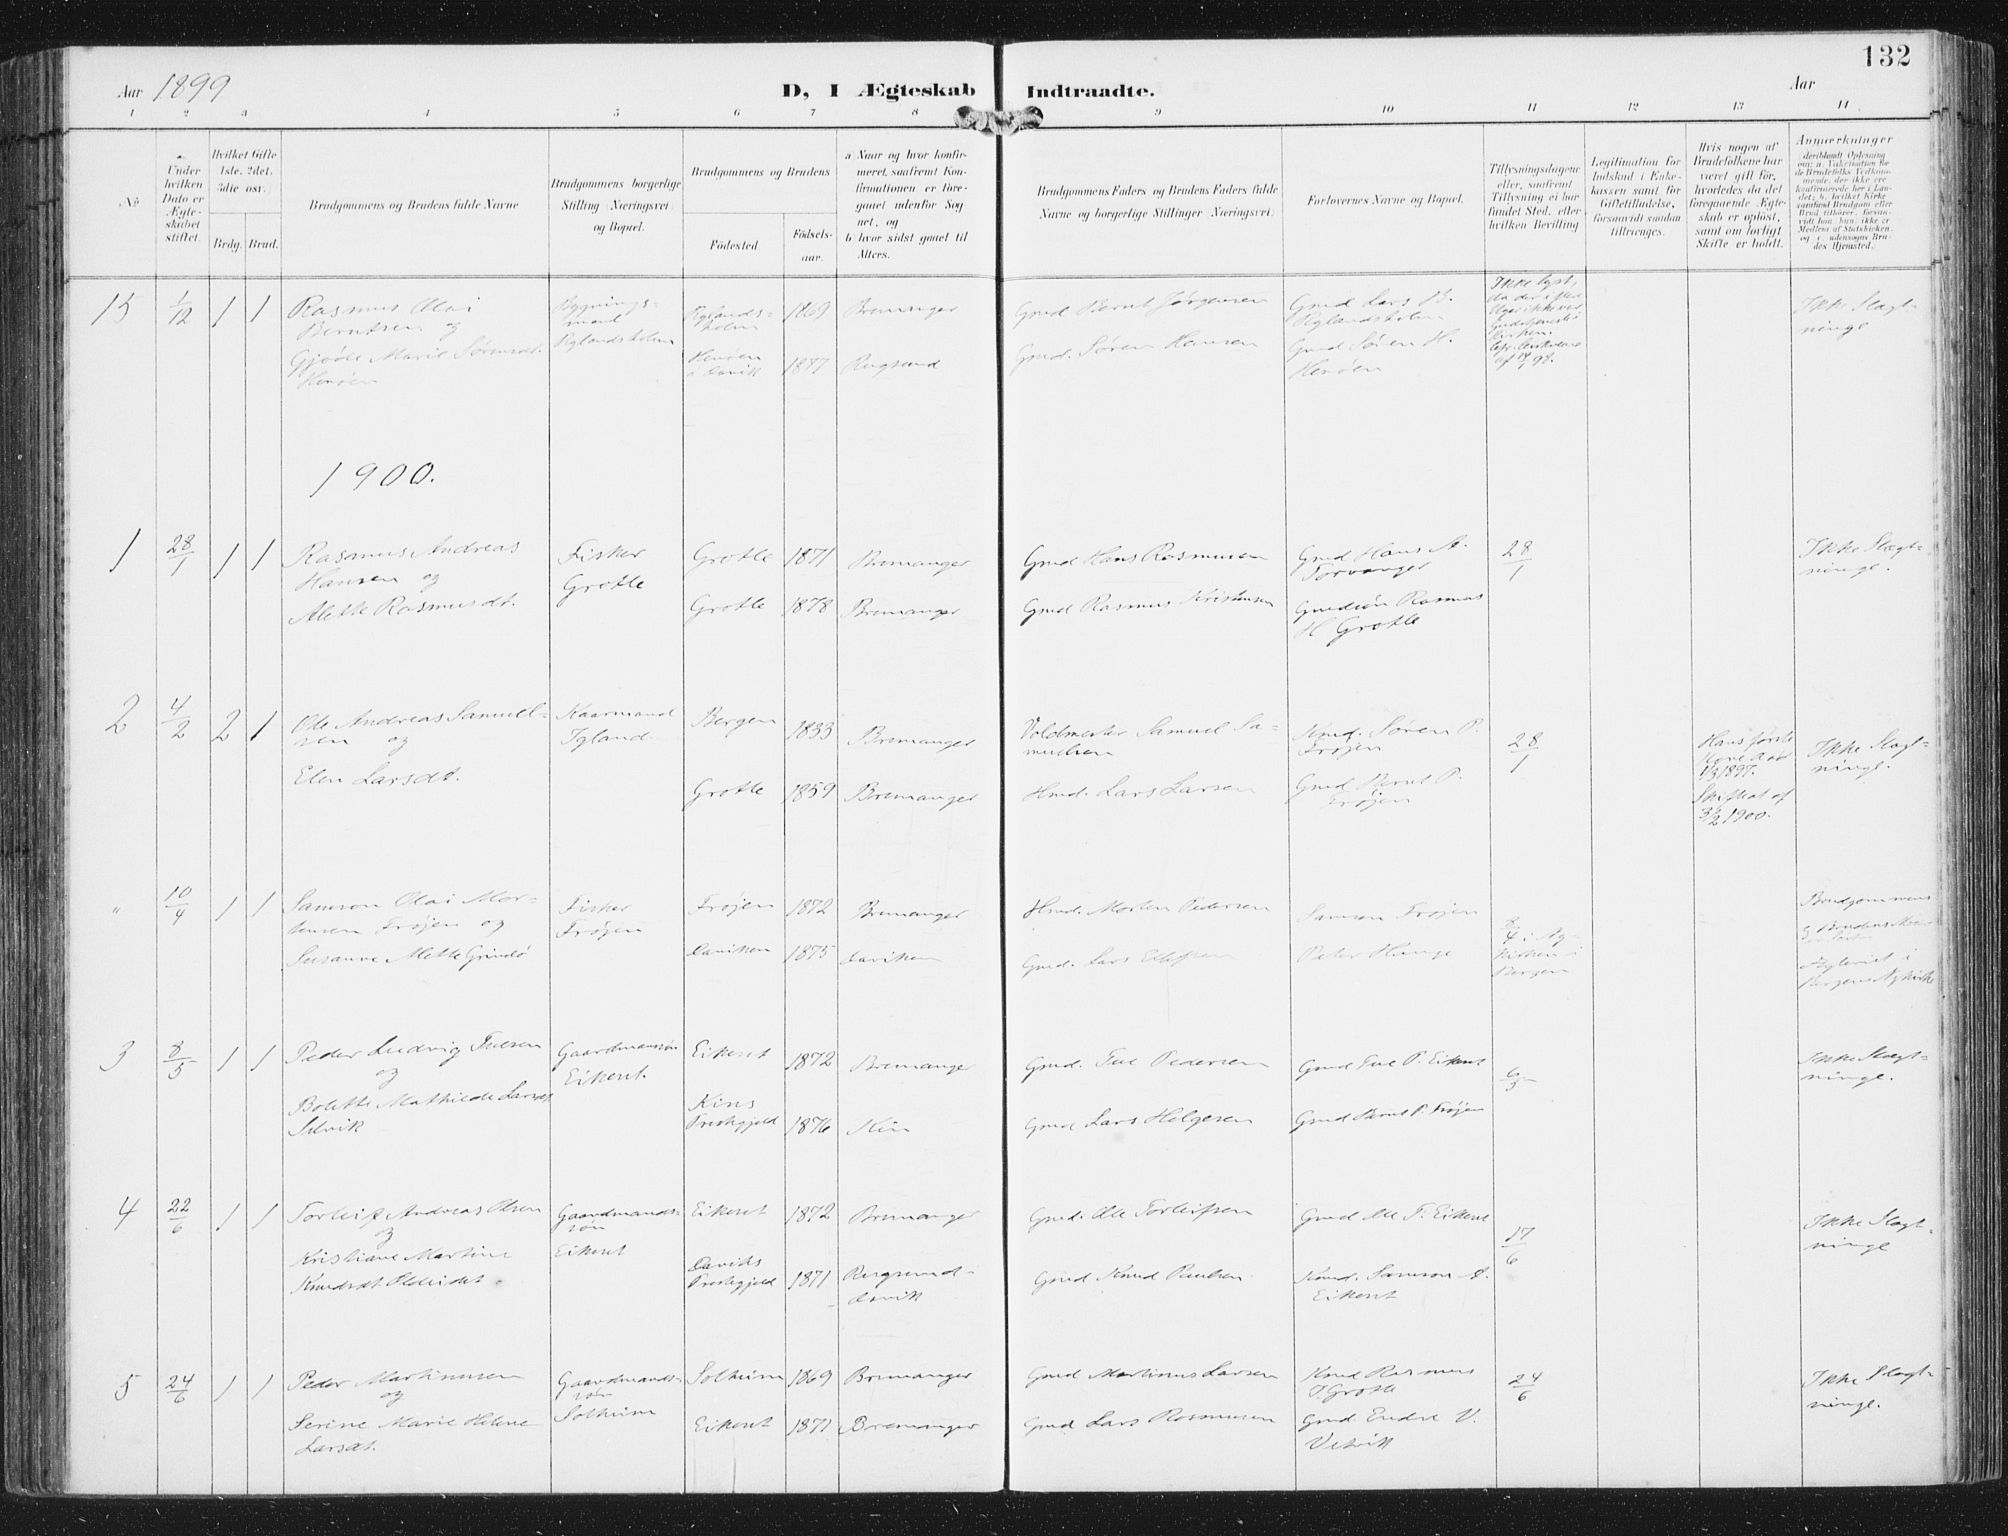 132
Aar 1899
D, I Ægteskab Indtraadte.
Aar
1 2 3 4 5 6 7 8 9 10 11 12 13 14
No.
Under hvilken Dato er Ægteskabet stiftet.
Hvilket Gifte 1ste, 2det, 3die osv.)
Brdg. Brud.
Brudgommens og Brudens fulde Navne
Brudgommens borgerlige Stilling (Næringsvei) og Bopæl.
Brudgommens og Brudens
Fødested
Fødselsaar.
a) Naar og hvor konfirmeret, saafremt Konfirmationen er foregaaet udenfor Sognet, og
b) hvor sidst gaaet til Alters.
Brudgommens Faders og Brudens Faders fulde Navne og borgerlige Stillinger (Næringsvei)
Forlovernes Navne og Bopæl.
Tillysningsdagene eller, saafremt Tillysning ei har fundet Sted, efter hvilken Bevilling
Legitimation for Indskud i Enkekassen samt for Giftetilladelse, forsaavidt saadan tiltrænges.
Hvis nogen af Brudefolkene har været gift før, hvorledes da det foregaaende Ægteskab er opløst, samt om lovligt Skifte er holdt.
Anmerkninger
15 1/12 1 1
Rasmus Olai
Berntsen og
Gjøole Marie Sørensdt.
Henøen
Bygningsmand
Rylandsholm
Rylandsholm 1869 Bremanger
Henøen i Davik 1877 Rugsund
Gmd Bernt Jørgensen
Gmd. Søren Hansen
Gmd Lars B.
Rylandsholm
Gmd Søren H.
Henøen
Ikke lyst,
Ikke Slægtninge
1900.
1 28/1 1 1
Rasmus Andreas
Hansen og
Alette Rasmusdt.
Fisker
Grotle
Grotle 1871 Bremanger
Grotle 1878 Bremanger
Gmd Hans Rasmusen
Gmd Rasmus Kristensen
Gmd Hans A.
Torvanger
Gmdsøn Rasmus
H Grotle
28/1
Ikke Slægtninge.
2 4/2 2 1
Ole Andreas Samuelsen og
Elen Larsdt.
Kaarmand
Igland
Bergen 1833 Bremanger
Grotle 1859 Bremanger
Voldmester Samuel Samuelsen
Hmd. Lars Larsen
Kmd. Søren P.
Frøjen
Gmd Bernt P.
Frøjen
28/1
Hans første
Kone død
1/3 1897.
Skiftet af
3/2 1900.
Ikke Slægtninge.
" 10/4 1 1
Samson Olai Mortensen Frøjen og
Susanne Mette Grindø
Fisker
Frøjen
Frøjen 1872 Bremanger
Daviken 1875 Daviken
Hmd. Morten Pedersen
Gmd. Lars Ellefsen
Samson Frøjen
Peter Hauge
8/4 i Nykirken i
Bergen
Brudgommens
og Brudens
Bergens Nykirke
3 8/5 1 1
Peder Ludvig Tuesen
og
Bolette Mathilde Larsdt
Selvik
Gaardmansøn
Eikeset.
Eikeset 1872 Bremanger
Kins
Prestegjeld 1876 Kin
Gmd. Tue Pedersen
Gmd Lars Helgesen
Gmd Tue P. Eikeset
Gmd Bernt P. Frøjen
6/5
Ikke Slægtninge.
4 22/6 1 1
Torleif Andreas Olsen
og
Kristiane Martine
Knudsdt.
Gaardmandssøn
Eikeset
Eikeset 1872 Bremanger
Daviks
Prestegjeld 1871 Rugsund Davik
Gmd. Ole Torleifsen
Gmd Knud Paulsen
Gmd Ole T. Eikeset
Kmd. Samson A.
Eikeset
17/6
Ikke Slægtninge
5 24/6 1 1
Peder Martinusen
og
Serine Marie Helene
Larsdt.
Gaardmandssøn
Solheim
Solheim 1869 Bremanger
Eikeset 1871 Bremanger
Gmd Martinus Larsen
Gmd Lars Rasmusen
Hmd Rasmus
J. Grotle
Gmd. Endre V.
Vetvik
24/6
Ikke Slægtninge.